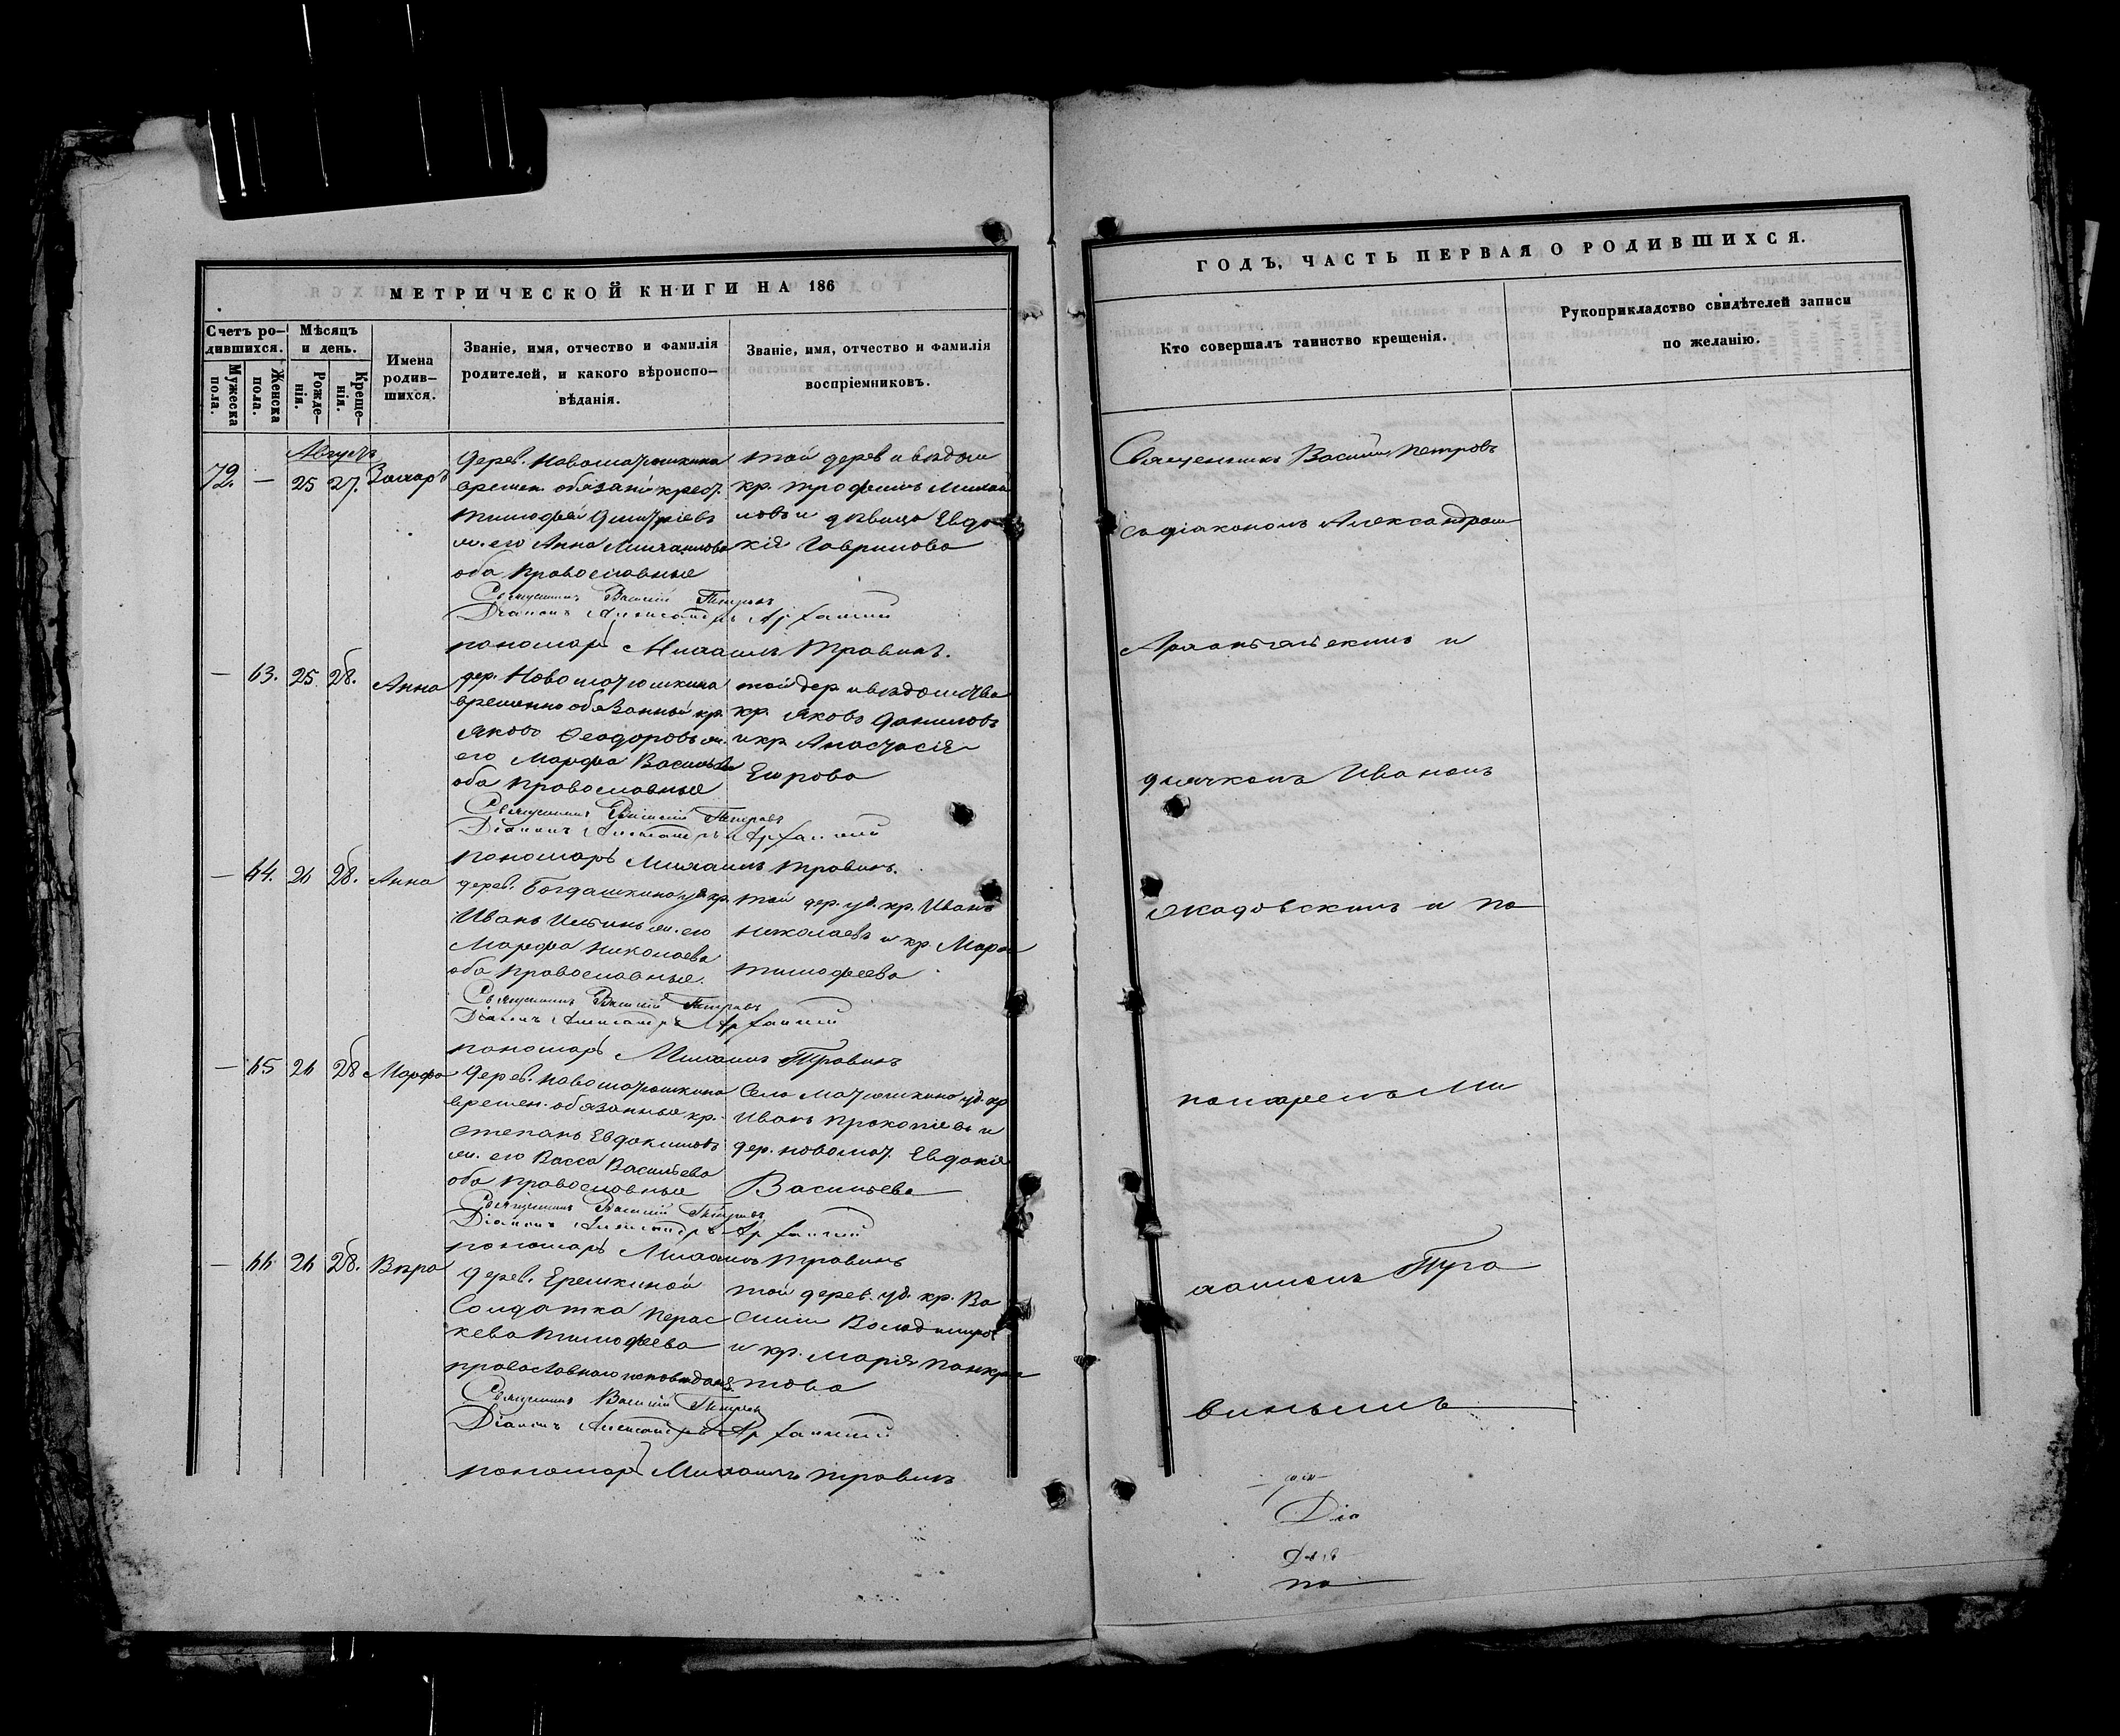 МЕТРИЧЕСКОЙ КНИГИ НА 186
Счетъ ро-
дившихся.
Мужеска
пола.
Женска
пола.
Мѣсяцъ
и день.
Рожде-
нія.
Креще-
нія.
Имена
родив-
шихся.
Званіе, имя, отчество и фамилія
родителей, и какого вѣроиспо-
вѣданія.
Званіе, имя, отчество и фамилія
воспріемниковъ.
Августъ
72. — 25 27. Захаръ
дерев. Новоматюшкина
времен. обязан. крест.
Тимофей Дмитріевъ
ж. его Анна Михаилова
оба православные
той дерев и вѣдом
кр. Трофимъ Михаи
ловъ и дѣвица Евдо
кія Гаврилова
Священникъ Василій Петровъ
Діаконъ Александръ Архан
пономарь Михаилъ Травинъ.
— 63. 25. 28. Анна
дер. Новоматюшкина
временно обязанный кр.
Яковъ Ѳеодоровъ ж.
его Марфа Васильева
оба православные
той дер. и вѣдомства
кр. Яковъ Даниловъ
и кр. Анастасія
Егорова
Священникъ Василій Петровъ
Діаконъ Александръ Архан
пономарь Михаилъ Травинъ.
— 64. 26 28. Анна
дерев. Богдашкина уд. кр.
Иванъ ж. его
Марфа Николаева
оба православные.
той дер. уд. кр. Иванъ
Николаевъ и кр. Марфа
Тимофеева
Священникъ Василій Петровъ
Діаконъ Александръ Архан
пономарь Михаилъ Травинъ
— 65 26 28 Марфа
дерев. Новоматюшкина
времен. обязанные кр.
Степанъ Евдокимовъ
ж. его Васса Васильева
оба православные
Село Матюшкино уд. кр
Иванъ Прокопіевъ и
дер. Новомат. Евдокія
Васильева
Священникъ Василій Петровъ
Діаконъ Александръ Архан
пономарь Михаилъ Травинъ
— 66 26 28. Вѣра
дерев. Еремкиной
Солдатка Перас
кева Тимофеева
православнаго исповѣданія
той дерев. уд. кр. Ва
силій Володимиров
и кр. Марія Панкра
това
Священникъ Василій Петровъ
Діаконъ Александръ Архан
пономарь Михаилъ Травинъ
ГОДЪ, ЧАСТЬ ПЕРВАЯ О РОДИВШИХСЯ.
Кто совершалъ таинство крещенія.
Рукоприкладство свидѣтелей записи
по желанію.
Священникъ Василій Петровъ
съ діакономъ Александромъ
Архангельскимъ и
дьячкомъ Иваномъ
Якадовскимъ и по
номаремъ Ми
хаиломъ Тра
виньимъ
Діа
по